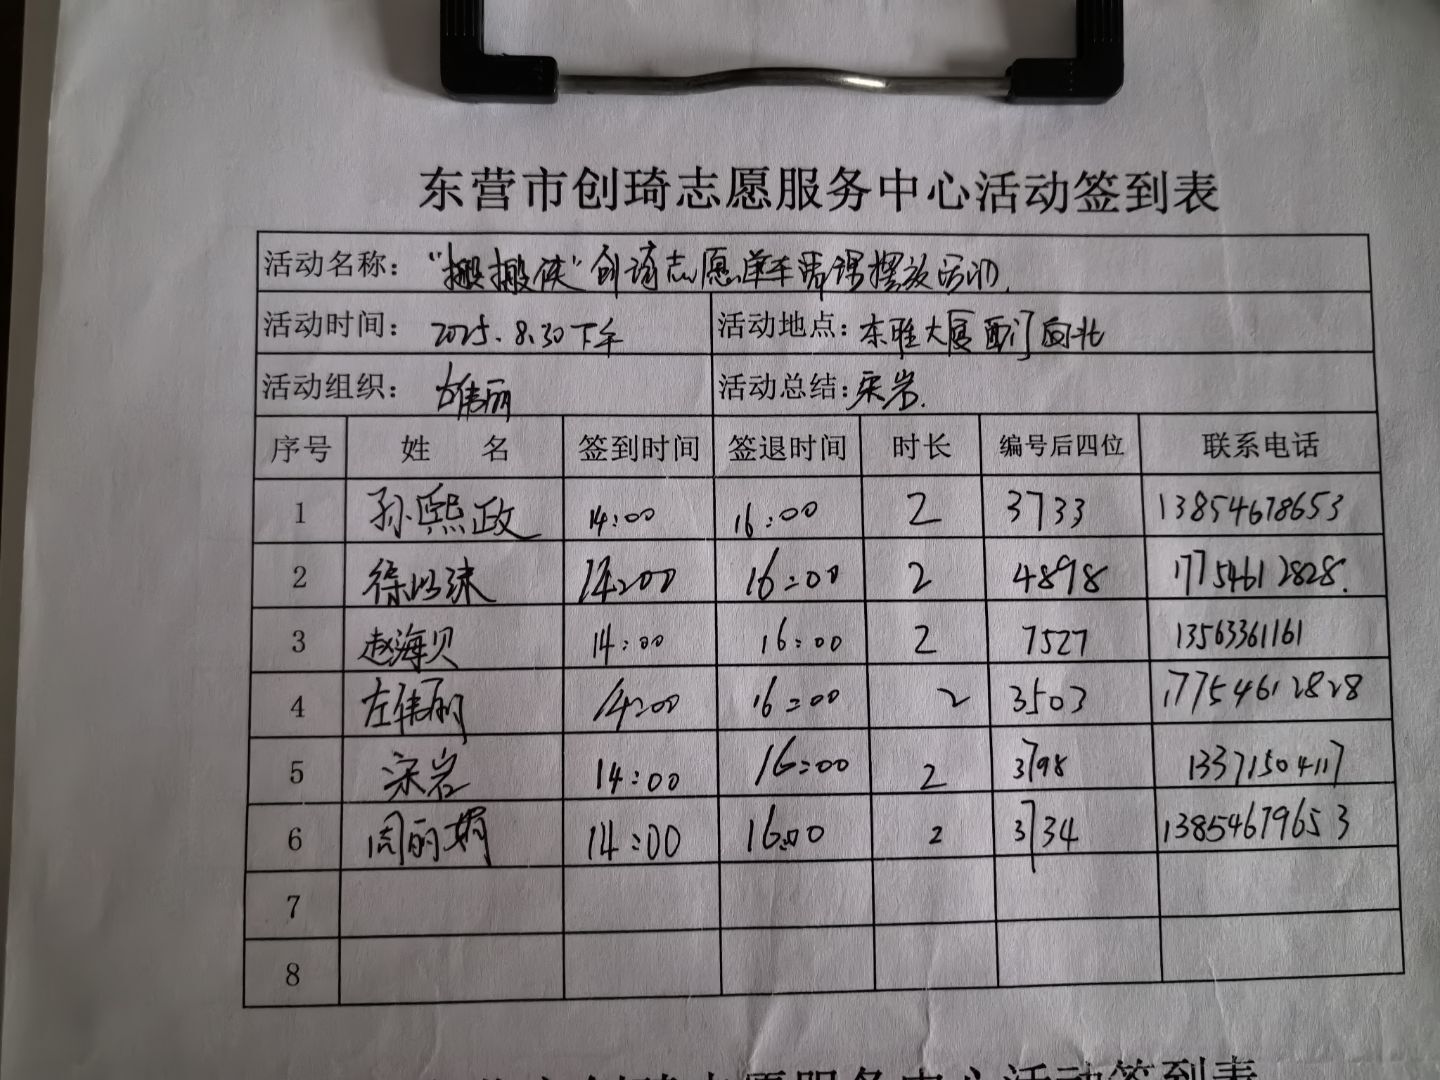 东营市创琦志愿服务中心活动签到表
活动名称："搬搬侠"创琦志愿单车有谱摆放活动.
活动时间：2025.8.30下午 活动地点：东雅大厦西门向北
活动组织：左伟丽 活动总结：宋岩.
序号 姓 名 签到时间 签退时间 时长 编号后四位 联系电话
1 孙熙政 14:00 16:00 2 3733 13854678653
2 徐以沫 14:00 16:00 2 4898 17754612828.
3 赵海贝 14:00 16:00 2 7527 13563361161
4 左伟丽 14:00 16:00 2 3503 17754612828
5 宋岩 14:00 16:00 2 3798 13371504117
6 周丽娟 14:00 16:00 2 3734 13854679653
7
8
志愿服务中心活动签到表